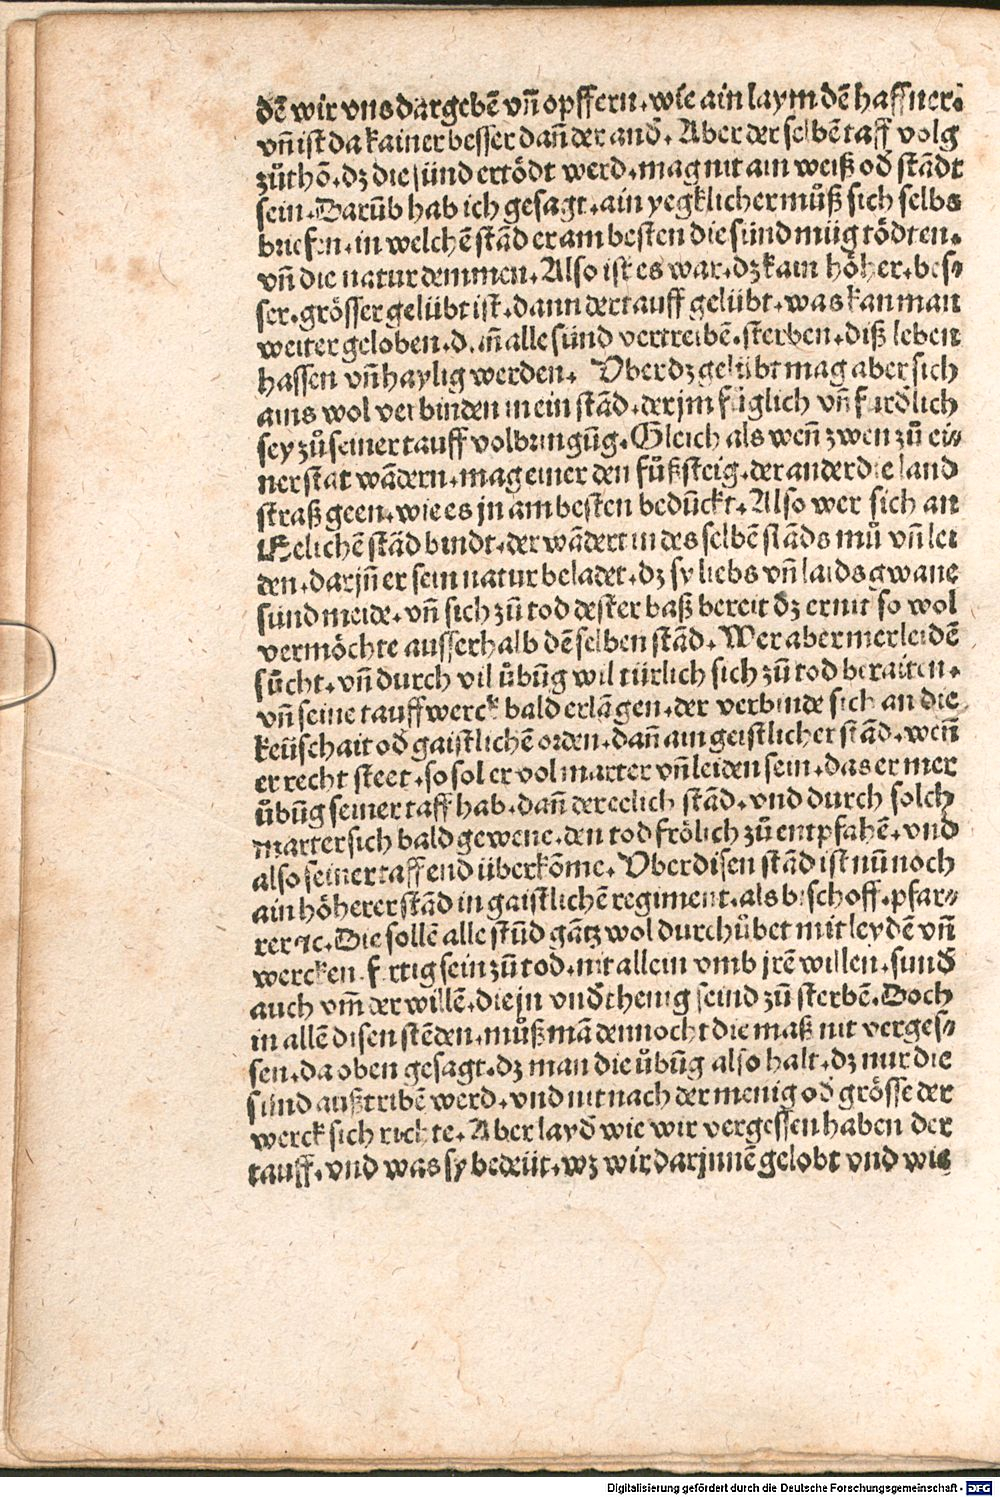 dē wir vns dargebē vn̄ opffern. wie ain laym dē haffner.
vn̄ ist da kainer besser dan̄ der and̄. Aber der selbē taff volg
zůthō. dz die sünd ertödt werd. mag nit ain weiß od̄ stādt
sein. Darūb hab ich gesagt. ain yegklicher můß sich selbs
briefen. in welchē stād er am besten die sünd müg tödten.
vn̄ die natur demmen. Also ist es war. dz kain höher. bes⸗
ser. grösser gelübt ist. dann der tauff gelübt. was kan man
weiter geloben. dan̄ alle sünd vertreibē. sterben. diß leben
hassen vn̄ haylig werden. Vber dz gelübt mag aber sich
ains wol verbinden in ein stād. der jm füglich vn̄ furd̄lich
sey zů seiner tauff volbringūg. Gleich als wen̄ zwen zů ei⸗
ner stat wādern. mag einer den fůßsteig. der ander die land
straß geen. wie es jn am besten bedūckt. Also wer sich an
Eelichē stād bindt. der wādert in des selbē stāds mů vn̄ lei
den. darjn̄ er sein natur beladet. dz sy liebs vn̄ laids gwane
sünd meide. vn̄ sich zů tod dester baß bereit dz er nit so wol
vermöchte ausserhalb dē selben stād. Wer aber mer leidē
sůcht. vn̄ durch vil übūg wil türlich sich zů tod beraiten.
vn̄ seine tauff werck bald erlāgen. der verbinde sich an die
keüschait od̄ gaistlichē orden. dan̄ ain geistlicher stād. wen̄
er recht steet. so sol er vol marter vn̄ leiden sein. das er mer
übūg seiner taff hab. dan̄ der eelich stād. vnd durch solch
marter sich bald gewene. den tod frölich zů entpfahē. vnd
also seiner taff end überkōme. Vber disen stād ist nū noch
ain höherer stād in gaistlichē regiment. als bischoff. pfar⸗
rer ꝛc. Die sollē alle stūd gātz wol durchübet mit leydē vn̄
wercken. fertig sein zů tod. nit allein vmb jrē willen. sund̄
auch vm̄ der willē. die jn vnd̄thenig seind zů sterbē. Doch
in allē disen stēden. můß mā dennocht die maß nit verges⸗
sen. da oben gesagt. dz man die übūg also halt. dz nur die
sünd außtribē werd. vnd nit nach der menig od̄ grösse der
werck sich richte. Aber layd̄ wie wir vergessen haben der
tauff. vnd was sy bedeüt. wz wir darjnnē gelobt vnd wie
Digitalisierung gefördert durch die Deutsche Forschungsgemeinschaft - DFG